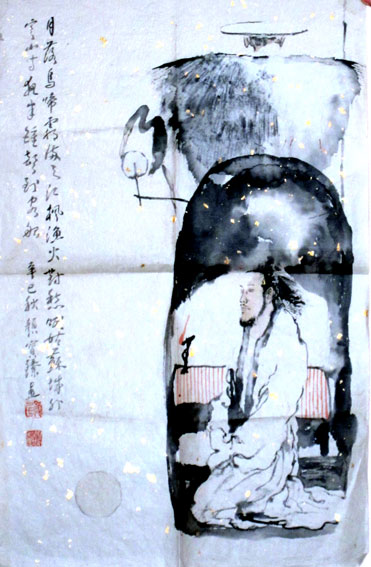 月落烏啼霜滿天江楓漁火對愁眠姑蘇城外
寒山寺夜半鐘聲到客船
辛巳秋